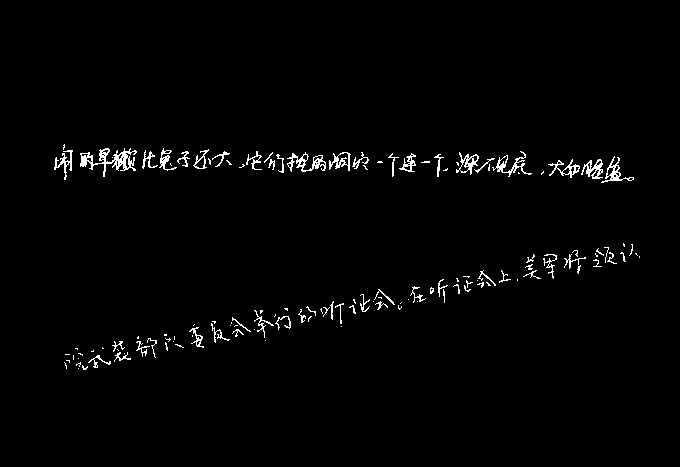 闹的旱獭比兔子还大,它们挖的洞穴一个连一个,深不见底,大如脸盆。
院武装部队委员会举行的听证会。在听证会上,美军将领认